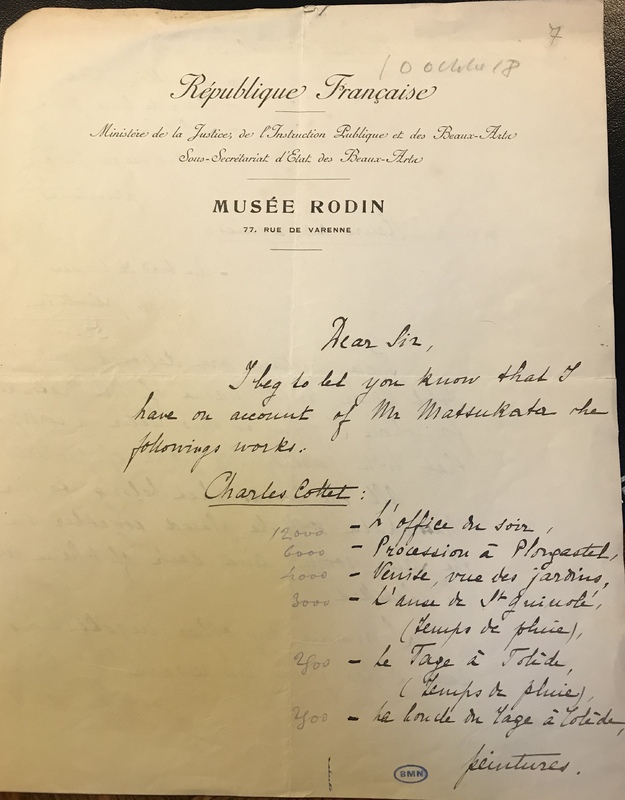 7
10 Octobre 18
République Française
Ministère de la Justice, de l'Instruction Publique et des Beaux-Arts
Sous-Secrétariat d'État des Beaux-Arts
MUSÉE RODIN
77, RUE DE VARENNE
Dear Sir,
I beg to let you know that I
have on account of Mr Matsukata the
followings works:
Charles Cottet :
12000 – L'office du soir,
6000 – Procession à Plougastel,
4000 – Venise, vue des jardins,
3000 – L'anse de St Guénolé,
(temps de pluie),
2500 – Le Tage à Tolède,
(temps de pluie),
2500 – La boucle du Tage à Tolède,
peintures.
BMN